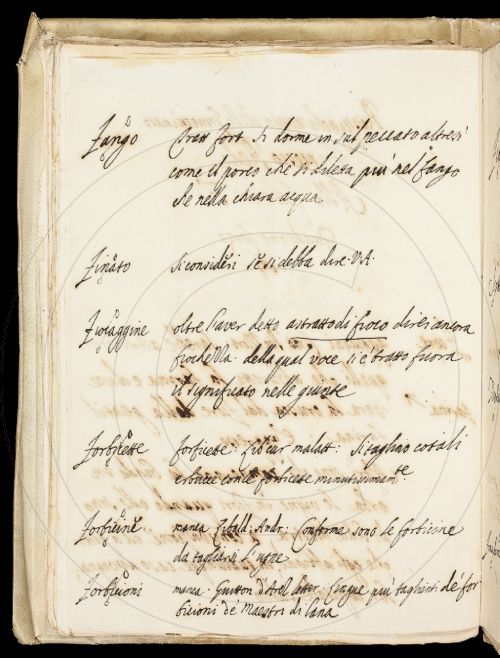 Fango Tratt. fort. si dorme in sul peccato altresì
come il porco che si diletta più nel fango
che nella chiara acqua
Finato si consideri se si debba dire. V.A.
Fiocaggine oltre l'aver detto astratto di fioco direi ancora
fiochezza. della qual voce si è tratto fuora
il significato nelle giunte
Forficette forficette: Lib: cur malatt: Si taglino cotali
erbucce con le forficete minutissimamte
Forbicine manca Zibald: Andr: Conforma sono le forbicine
da tagliarsi l'ugne
Forbicioni manca. Guitton d'Arez letter: Lingue più taglienti de' for
bicioni de Maestri di lana